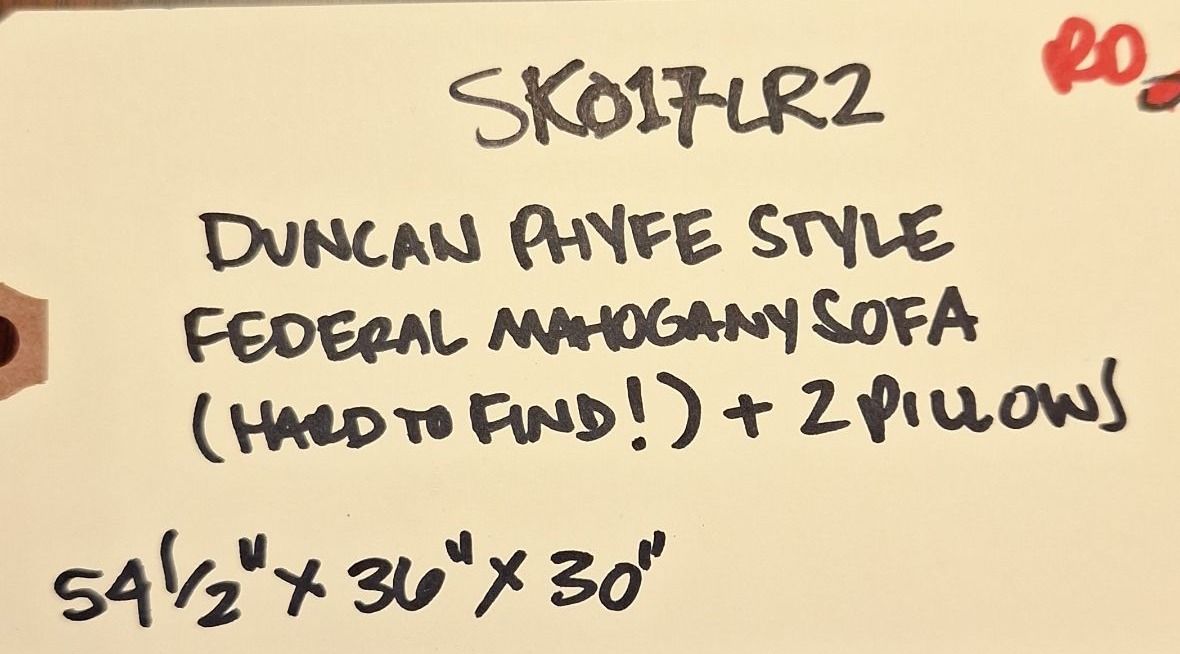 RO
SK017LR2
DUNCAN PHYFE STYLE
FEDERAL MAHOGANY SOFA
(HARD TO FIND!) + 2 PILLOWS
54 1/2" X 36" X 30"